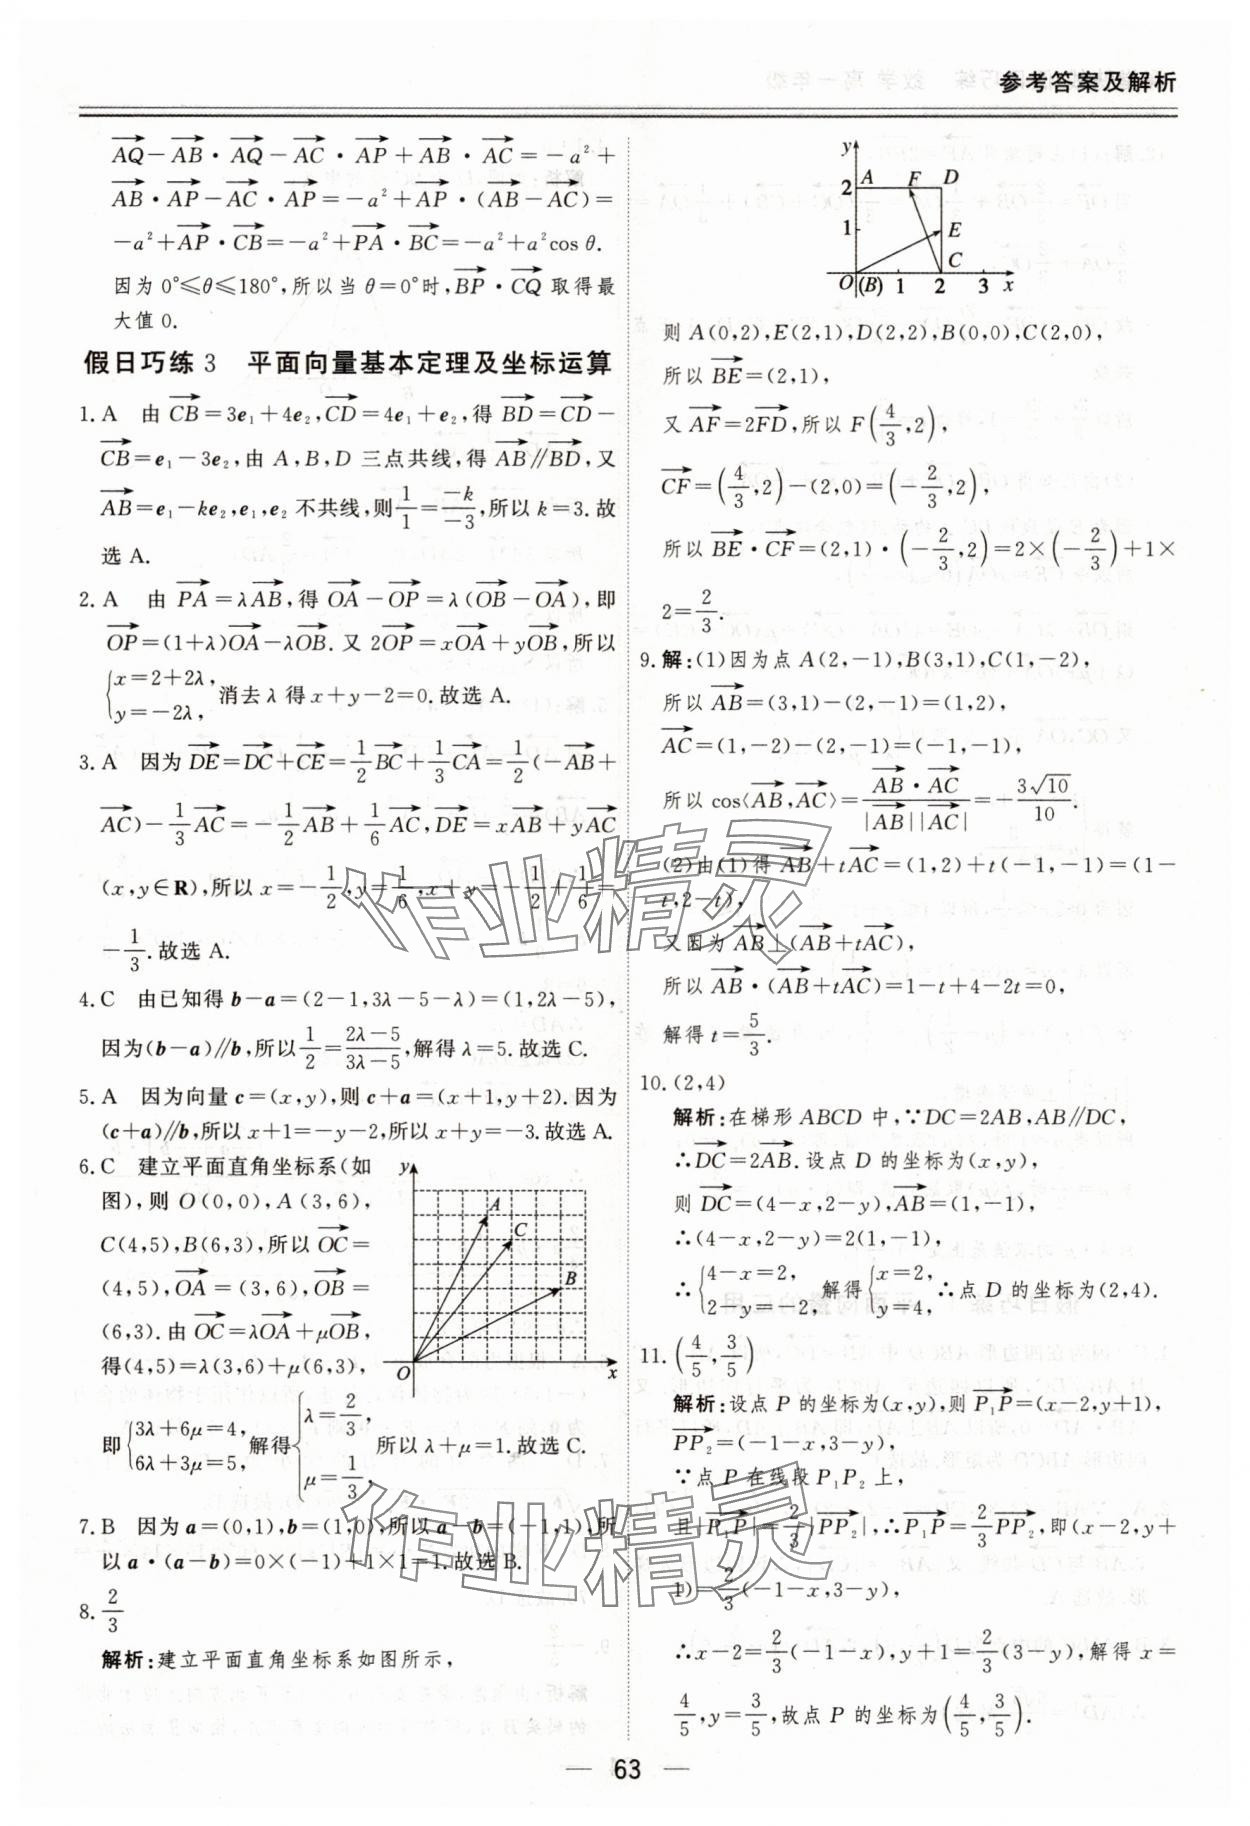 参考答案及解析
AQ−AB·AQ−AC·AP+AB·AC=−a²+
AB·AP−AC·AP=−a²+AP·(AB−AC)=
−a²+AP·CB=−a²+PA·BC=−a²+a²cos θ.
因为 0°≤θ≤180°,所以当 θ=0°时,BP·CQ 取得最
大值 0.
假日巧练 3 平面向量基本定理及坐标运算
1. A 由 CB=3e₁+4e₂,CD=4e₁+e₂,得 BD=CD−
CB=e₁−3e₂,由 A,B,D 三点共线,得 AB∥BD,又
AB=e₁−ke₂,e₁,e₂ 不共线,则 1/1=−k/−3,所以 k=3.故
选 A.
2. A 由 PA=λAB,得 OA−OP=λ(OB−OA),即
OP=(1+λ)OA−λOB.又 2OP=xOA+yOB,所以
{x=2+2λ, y=−2λ, 消去 λ 得 x+y−2=0.故选 A.
3. A 因为 DE=DC+CE=1/2 BC+1/3 CA=1/2(−AB+
AC)−1/3 AC=−1/2 AB+1/6 AC,DE=xAB+yAC
(x,y∈R),所以 x=−1/2,y=1/6,x+y=−1/2+1/6=
−1/3.故选 A.
4. C 由已知得 b−a=(2−1,3λ−5−λ)=(1,2λ−5),
因为(b−a)∥b,所以 1/2=(2λ−5)/(3λ−5),解得 λ=5.故选 C.
5. A 因为向量 c=(x,y),则 c+a=(x+1,y+2).因为
(c+a)∥b,所以 x+1=−y−2,所以 x+y=−3.故选 A.
6. C 建立平面直角坐标系(如
图),则 O(0,0),A(3,6),
C(4,5),B(6,3),所以 OC=
(4,5),OA=(3,6),OB=
(6,3).由 OC=λOA+μOB,
得(4,5)=λ(3,6)+μ(6,3),
即{3λ+6μ=4, 6λ+3μ=5, 解得{λ=2/3, μ=1/3, 所以 λ+μ=1.故选 C.
y
A
C
B
O
x
7. B 因为 a=(0,1),b=(1,0),所以 a−b=(−1,1),所
以 a·(a−b)=0×(−1)+1×1=1.故选 B.
8. 2/3
解析:建立平面直角坐标系如图所示,
y
2 A F D
1 E
C
O (B) 1 2 3 x
则 A(0,2),E(2,1),D(2,2),B(0,0),C(2,0),
所以 BE=(2,1),
又 AF=2FD,所以 F(4/3,2),
CF=(4/3,2)−(2,0)=(−2/3,2),
所以 BE·CF=(2,1)·(−2/3,2)=2×(−2/3)+1×
2=2/3.
9. 解:(1)因为点 A(2,−1),B(3,1),C(1,−2),
所以 AB=(3,1)−(2,−1)=(1,2),
AC=(1,−2)−(2,−1)=(−1,−1),
所以 cos⟨AB,AC⟩=AB·AC/|AB||AC|=−3√10/10.
(2)由(1)得 AB+tAC=(1,2)+t(−1,−1)=(1−
t,2−t),
又因为 AB⊥(AB+tAC),
所以 AB·(AB+tAC)=1−t+4−2t=0,
解得 t=5/3.
10. (2,4)
解析:在梯形 ABCD 中,∵DC=2AB,AB∥DC,
∴DC=2AB.设点 D 的坐标为(x,y),
则 DC=(4−x,2−y),AB=(1,−1),
∴(4−x,2−y)=2(1,−1),
∴{4−x=2, 2−y=−2, 解得{x=2, y=4, ∴点 D 的坐标为(2,4).
11. (4/5,3/5)
解析:设点 P 的坐标为(x,y),则 P₁P=(x−2,y+1),
PP₂=(−1−x,3−y),
∵点 P 在线段 P₁P₂ 上,
且|P₁P|=2/3|PP₂|,∴P₁P=2/3 PP₂,即(x−2,y+
1)=2/3(−1−x,3−y),
∴x−2=2/3(−1−x),y+1=2/3(3−y),解得 x=
4/5,y=3/5,故点 P 的坐标为(4/5,3/5).
— 63 —
作业精灵
作业精灵